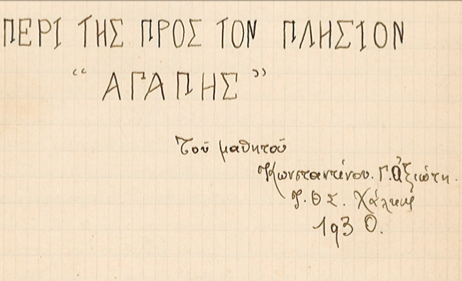 ΠΕΡΙ ΤΗΣ ΠΡΟΣ ΤΟΝ ΠΛΗΣΙΟΝ
“ΑΓΑΠΗΣ”
Τοῦ μαθητοῦ
Κωνσταντίνου. Γ. Ἀξιώτη.
Ι.Θ.Σ. Χάλκης
1930.